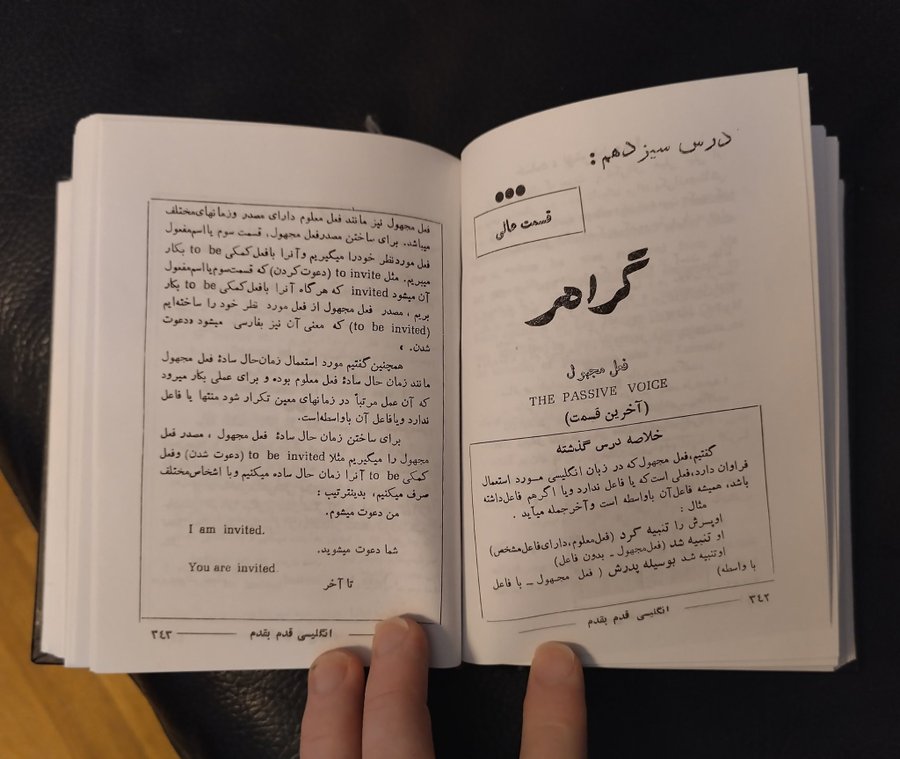 درس سیزدهم :
قسمت عالی
گرامر
فعل مجهول
THE PASSIVE VOICE
(آخرین قسمت)
خلاصه درس گذشته
گفتیم، فعل مجهول که در زبان انگلیسی مورد استعمال
فراوان دارد، فعلی است که یا فاعل ندارد ویا اگر هم فاعل داشته
باشد، همیشه فاعل آن باواسطه است و آخر جمله میآید .
مثال :
او پسرش را تنبیه کرد (فعل معلوم، دارای فاعل مشخص)
او تنبیه شد (فعل مجهول ــ بدون فاعل)
او تنبیه شد بوسیله پدرش ( فعل مجهول ــ با فاعل
با واسطه)
۳۴۲ انگلیسی قدم بقدم
فعل مجهول نیز مانند فعل معلوم دارای مصدر وزمانهای مختلف
میباشد. برای ساختن مصدر فعل مجهول، قسمت سوم یا اسم مفعول
فعل مورد نظر خود را میگیریم و آنرا با فعل کمکی to be بکار
میبریم. مثل to invite (دعوت کردن) که قسمت سوم یا اسم مفعول
آن میشود invited که هر گاه آنرا با فعل کمکی to be بکار
بریم ، مصدر فعل مجهول از فعل مورد نظر خود را ساخته‌ایم
(to be invited) که معنی آن نیز بفارسی میشود «دعوت
شدن. »
همچنین گفتیم مورد استعمال زمان حال سادهٔ فعل مجهول
مانند زمان حال سادهٔ فعل معلوم بوده و برای عملی بکار میرود
که آن عمل مرتباً در زمانهای معین تکرار شود منتها یا فاعل
ندارد ویا فاعل آن باواسطه است.
برای ساختن زمان حال سادهٔ فعل مجهول ، مصدر فعل
مجهول را میگیریم مثلا to be invited (دعوت شدن) وفعل
کمکی to be آنرا زمان حال ساده میکنیم و با اشخاص مختلف
صرف میکنیم، بدینترتیب :
من دعوت میشوم.
I am invited.
شما دعوت میشوید.
You are invited.
تا آخر
انگلیسی قدم بقدم ۳۴۳